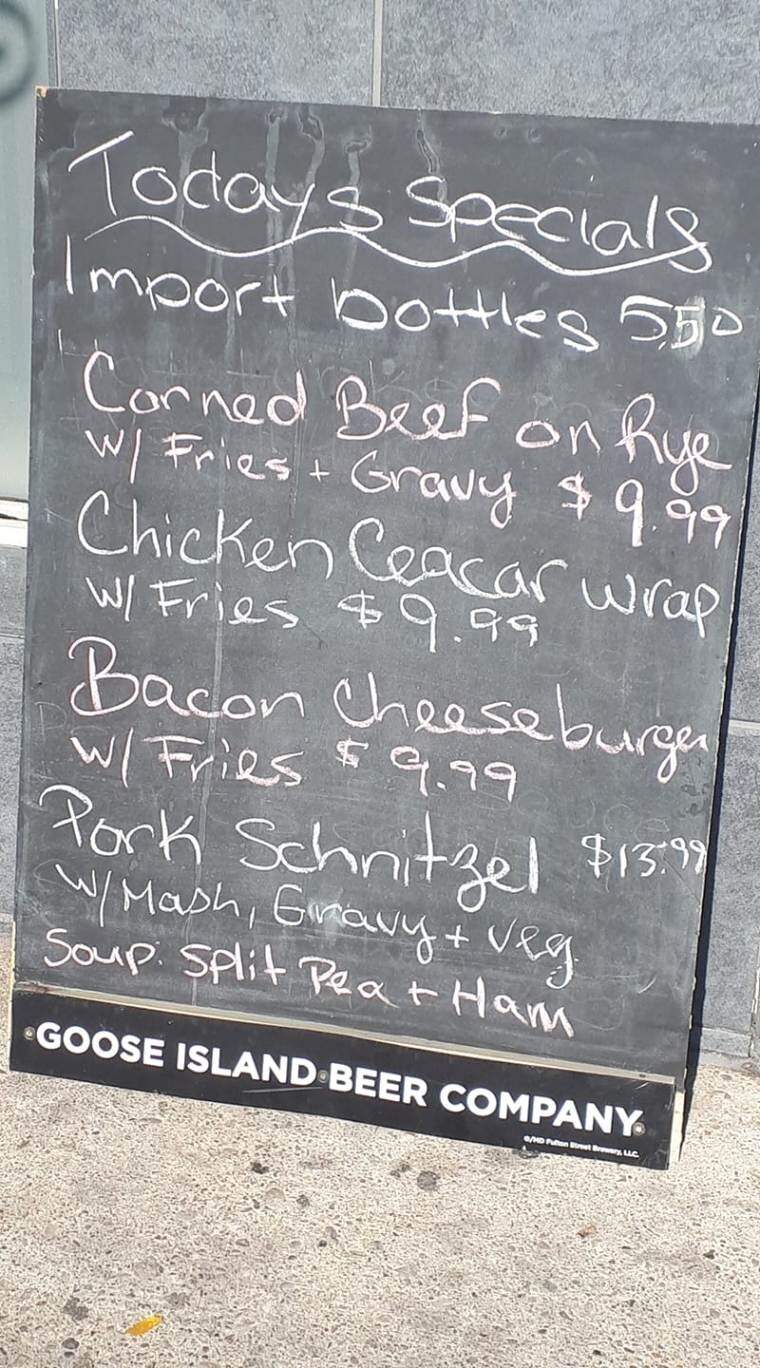 Todays Specials
Import bottles 5.50
Corned Beef on Rye
W/ Fries + Gravy $9.99
Chicken Ceacar wrap
W/ Fries $9.99
Bacon cheeseburger
W/ Fries $9.99
Pork Schnitzel $13.99
W/ Mash, Gravy + veg
Soup: Split Pea + Ham
GOOSE ISLAND BEER COMPANY
©/MD Fulton Street Brewery, LLC.